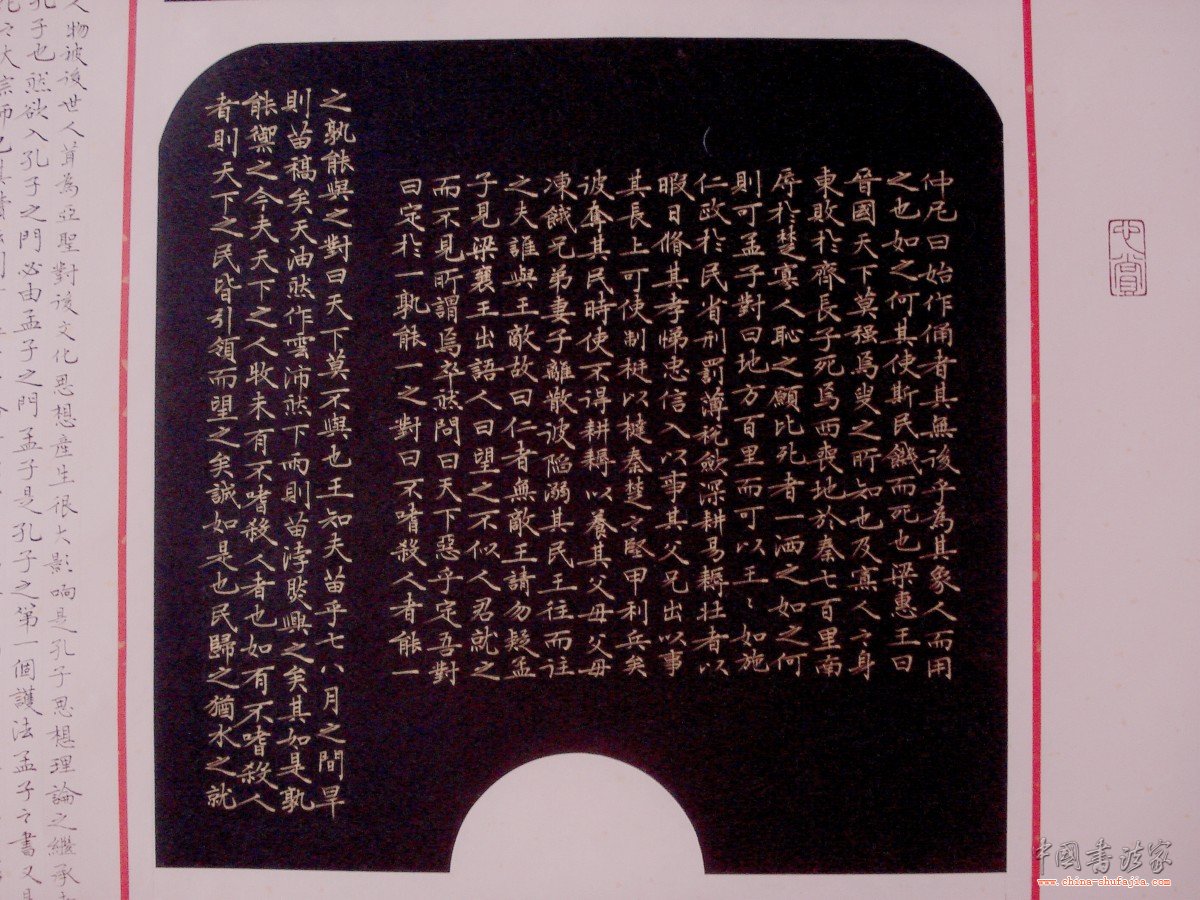 心賞
仲尼曰始作俑者其無後乎為其象人而用
之也如之何其使斯民饑而死也梁惠王曰
晉國天下莫强焉叟之所知也及寡人之身
東敗於齊長子死焉西喪地於秦七百里南
辱於楚寡人恥之願比死者一洒之如之何
則可孟子對曰地方百里而可以王〻如施
仁政於民省刑罰薄稅斂深耕易耨壯者以
暇日脩其孝悌忠信入以事其父兄出以事
其長上可使制梃以撻秦楚之堅甲利兵矣
彼奪其民時使不得耕耨以養其父母父母
凍餓兄弟妻子離散彼陷溺其民王往而征
之夫誰與王敵故曰仁者無敵王請勿疑孟
子見梁襄王出語人曰望之不似人君就之
而不見所謂焉卒然問曰天下惡乎定吾對
曰定於一孰能一之對曰不嗜殺人者能一
之孰能與之對曰天下莫不與也王知夫苗乎七八月之間旱
則苗稿矣天油然作雲沛然下雨則苗浡然興之矣其如是孰
能禦之今夫天下之人牧未有不嗜殺人者也如有不嗜殺人
者則天下之民皆引領而望之矣誠如是也民歸之猶水之就
人物被後世人尊為亞聖對後文化思想產生很大影响是孔子思想理論之繼承
孔子也然欲入孔子之門必由孟子之門孟子是孔子之第一個護法孟子之書又是
大宗師也其
中国书法家
www.china-shufajia.com